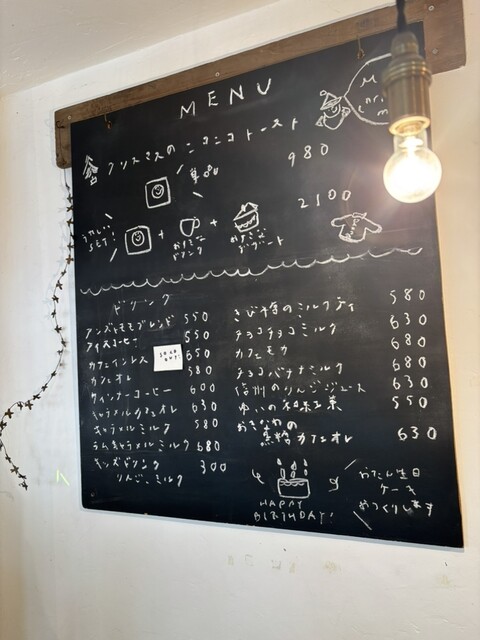 MENU
クリスマスのニコニコトースト
980
単品
2100
うれしいSET!
+
+
おすきなドリンク
おすきなデザート
ドリンク
ブレンド 550
アイスコーヒー 550
カフェインレス 650
SOLD OUT!
カフェオレ 580
ウィンナーコーヒー 600
キャラメルカフェオレ 630
キャラメルミルク 580
ラムキャラメルミルク 680
キッズドリンク 300
りんご、ミルク
きび糖のミルクティ 580
チョコチョコミルク 630
カフェモカ 680
チョコバナナミルク 680
信州のりんごジュース 630
ゆいの和紅茶 550
おきなわの
黒糖カフェオレ 630
HAPPY
BIRTHDAY!
おたん生日
ケーキ
おつくりします